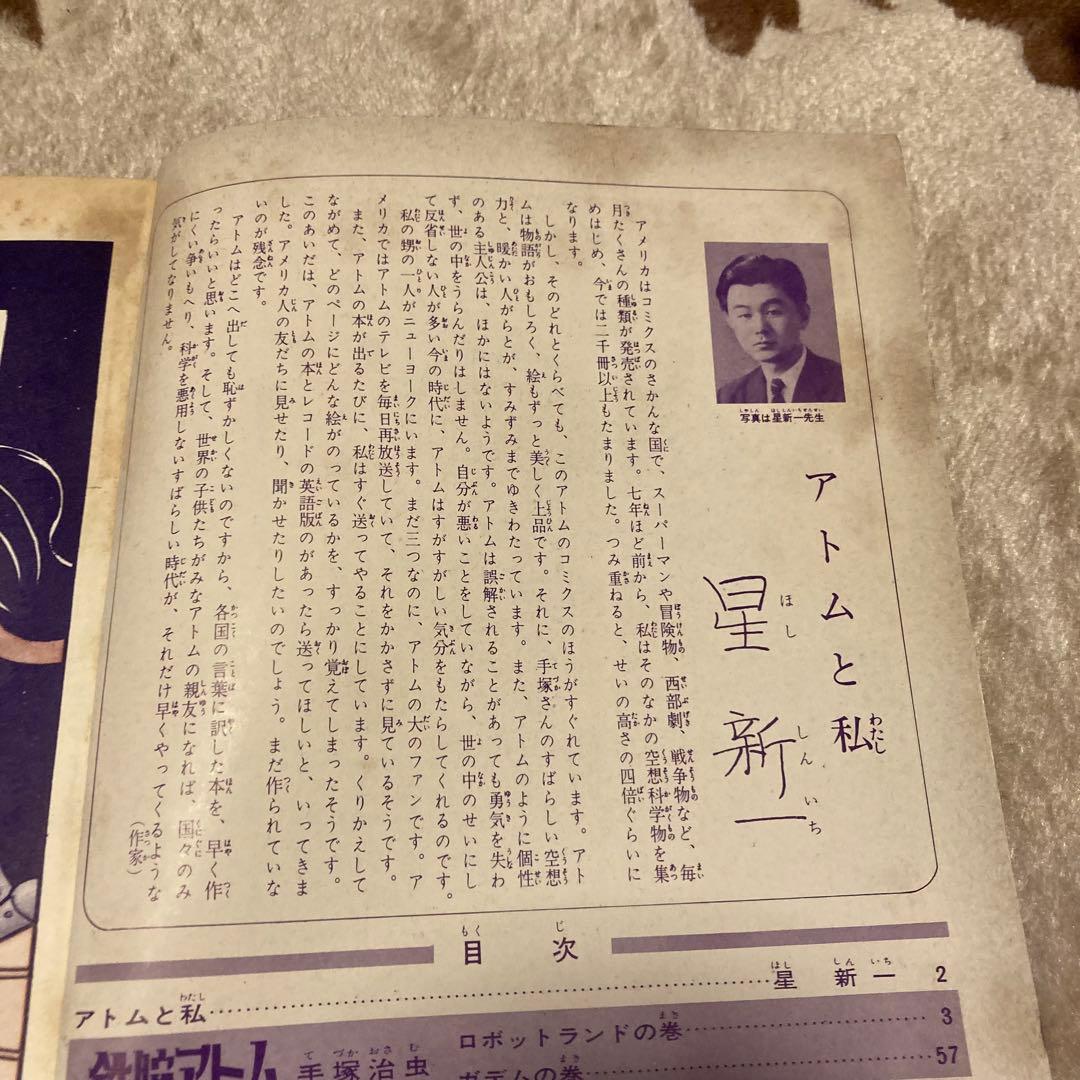 アトムと私
星新一
写真は星新一先生
アメリカはコミクスのさかんな国で、スーパーマンや冒険物、西部劇、戦争物など、毎
月たくさんの種類が発売されています。七年ほど前から、私はそのなかの空想科学物を集
めはじめ、今では二千冊以上もたまりました。つみ重ねると、せいの高さの四倍ぐらいに
なります。
しかし、そのどれとくらべても、このアトムのコミクスのほうがすぐれています。アト
ムは物語がおもしろく、絵もずっと美しく上品です。それに、手塚さんのすばらしい空想
力と、暖かい人がらとが、すみずみまでゆきわたっています。また、アトムのように個性
のある主人公は、ほかにはないようです。アトムは誤解されることがあっても勇気を失わ
ず、世の中をうらんだりはしません。自分が悪いことをしていながら、世の中のせいにし
て反省しない人が多い今の時代に、アトムはすがすがしい気分をもたらしてくれるのです。
私の甥の一人がニューヨークにいます。まだ三つなのに、アトムの大のファンです。ア
メリカではアトムのテレビを毎日再放送していて、それをかかさずに見ているそうです。
また、アトムの本が出るたびに、私はすぐ送ってやることにしています。くりかえして
ながめて、どのページにどんな絵がのっているかを、すっかり覚えてしまったそうです。
このあいだは、アトムの本とレコードの英語版のがあったら送ってほしいと、いってきま
した。アメリカ人の友だちに見せたり、聞かせたりしたいのでしょう。まだ作られていな
いのが残念です。
アトムはどこへ出しても恥ずかしくないのですから、各国の言葉に訳した本を、早く作
ったらいいと思います。そして、世界の子供たちがみなアトムの親友になれば、国々のみ
にくい争いもへり、科学を悪用しないすばらしい時代が、それだけ早くやってくるような
気がしてなりません。
（作家）
目次
アトムと私 星新一 2
鉄腕アトム 手塚治虫
ロボットランドの巻 3
ガデムの巻 57